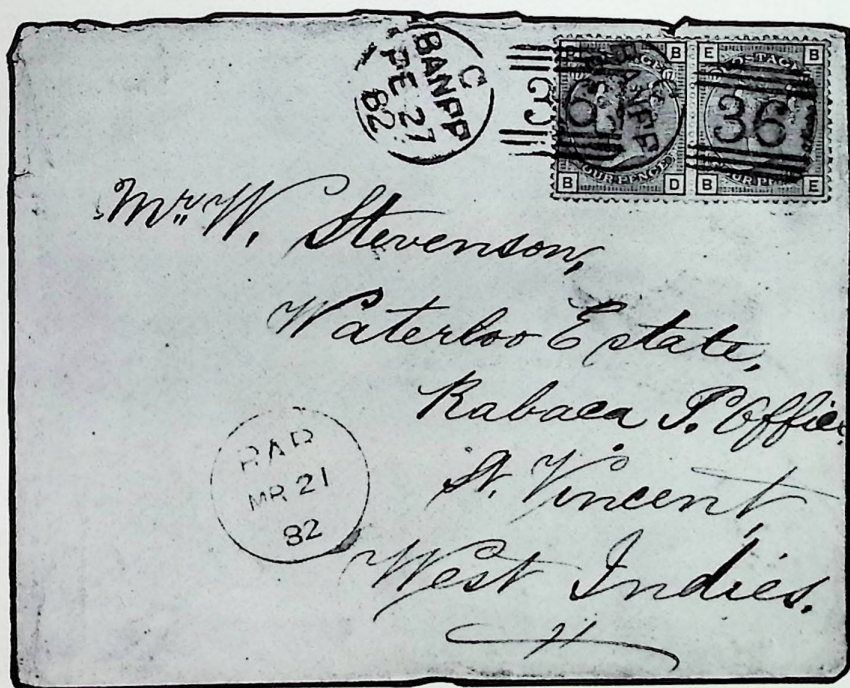 C
BANFF
FE 27
82
36
POSTAGE
FOUR PENCE
B B
B D
E B
B E
Mr. W. Stevenson,
Waterloo Estate,
Rabaca P. Office,
St. Vincent,
West Indies.
RAB
MR 21
82